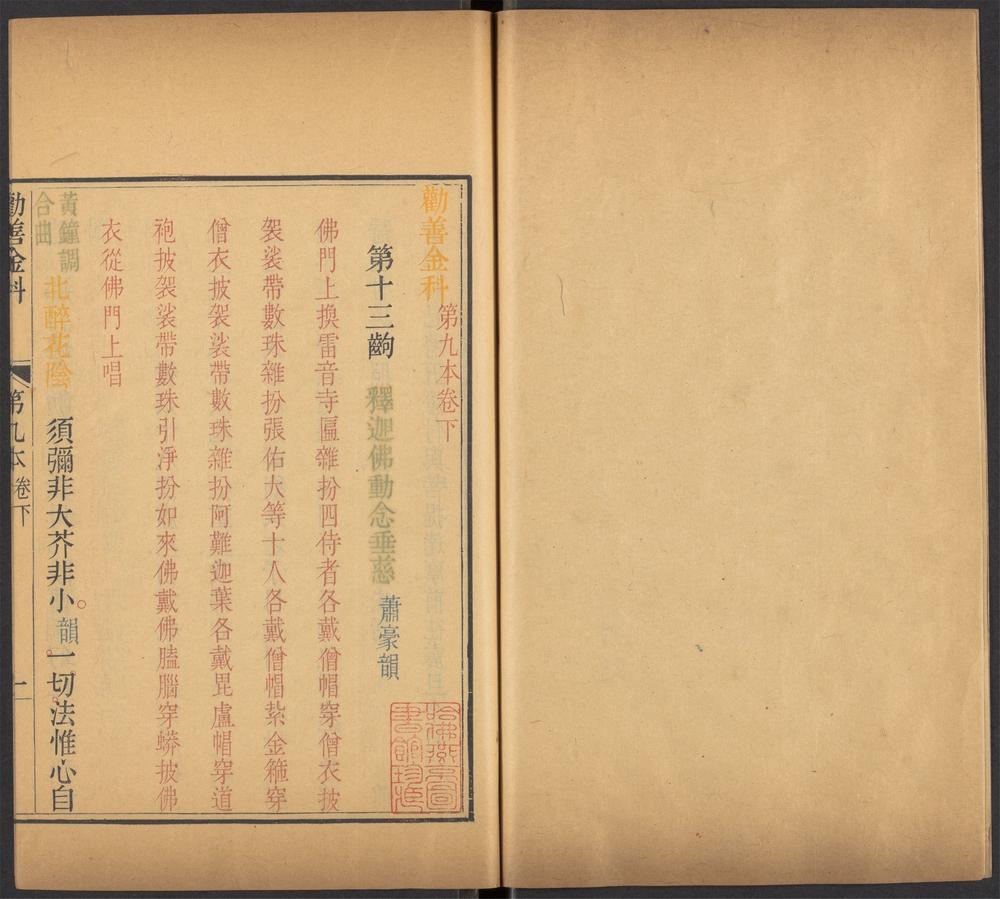 勸善金科第九本卷下
第十三齣 釋迦佛動念垂慈 蕭豪韻
佛門上換雷音寺匾雜扮四侍者各戴僧帽穿僧衣披
袈裟帶數珠雜扮張佑大等十人各戴僧帽紮金箍穿
僧衣披袈裟帶數珠雜扮阿難迦葉各戴毘盧帽穿道
袍披袈裟帶數珠引淨扮如來佛戴佛膉腦穿蟒披佛
衣從佛門上唱
黃鐘調
合曲
北醉花陰 須彌非大芥非小。韻一切法惟心自
勸善金科 第九本卷下 一
哈佛燕京圖書館珍藏